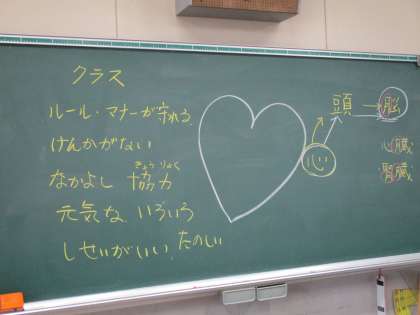 クラス
ルール・マナーが守れる
けんかがない
きょうりょく
なかよし 協力
元気な いろいろ
しせいがいい、たのしい
心
頭
脳
心臓
腎臓